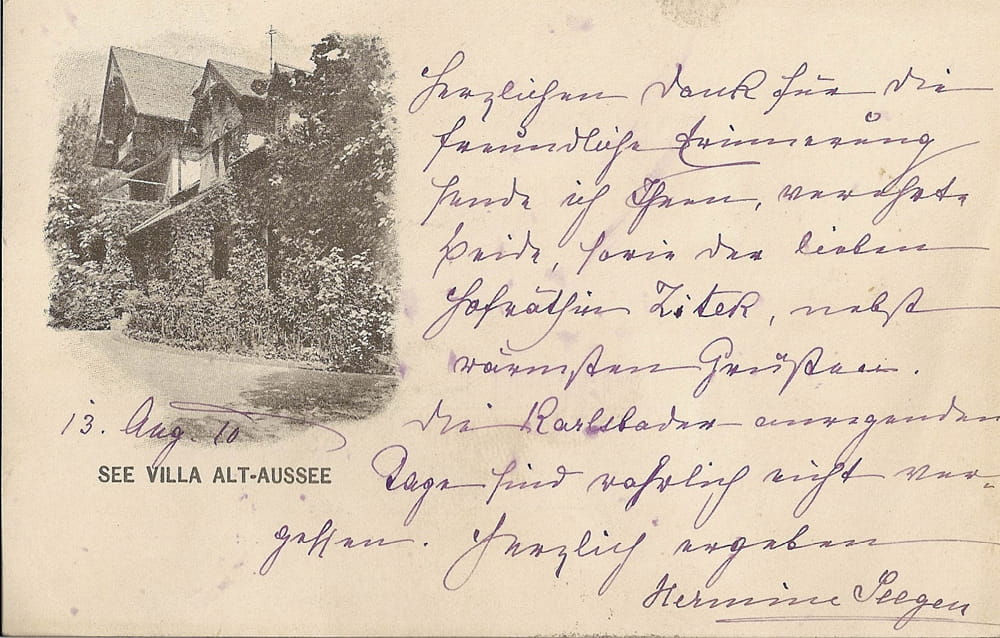 Herzlichen Dank für die
freundliche Erinnerung
sende ich Ihnen, verehrte
Beide, sowie der lieben
Hofräthin Zitek, nebst
wärmsten Grüßen.
Die Karlsbader anregenden
Tage sind wahrlich nicht ver-
gessen. Herzlich ergeben
Hermine Seegen
13. Aug. 10
SEE VILLA ALT-AUSSEE